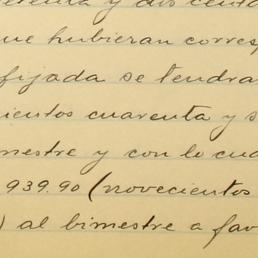 y dos
ue hubieran corres
fijada se tendra
cientos cuarenta y s
mestre y con lo cua
939.90 (novecientos
) al bimestre a fav